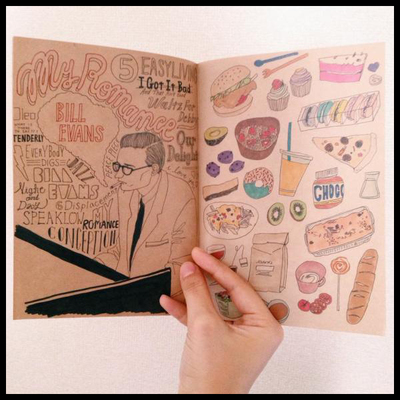 My Romance
5 EASY LIVING
I Got It Bad
Waltz For
Debby
Our
Delight
BILL
EVANS
TENDERLY
EVERYBODY
DIGS
JAZZ
BILL
EVANS
Night
and Day
Displacement
SPEAK LOW
ROMANCE
CONCEPTION
CHOC